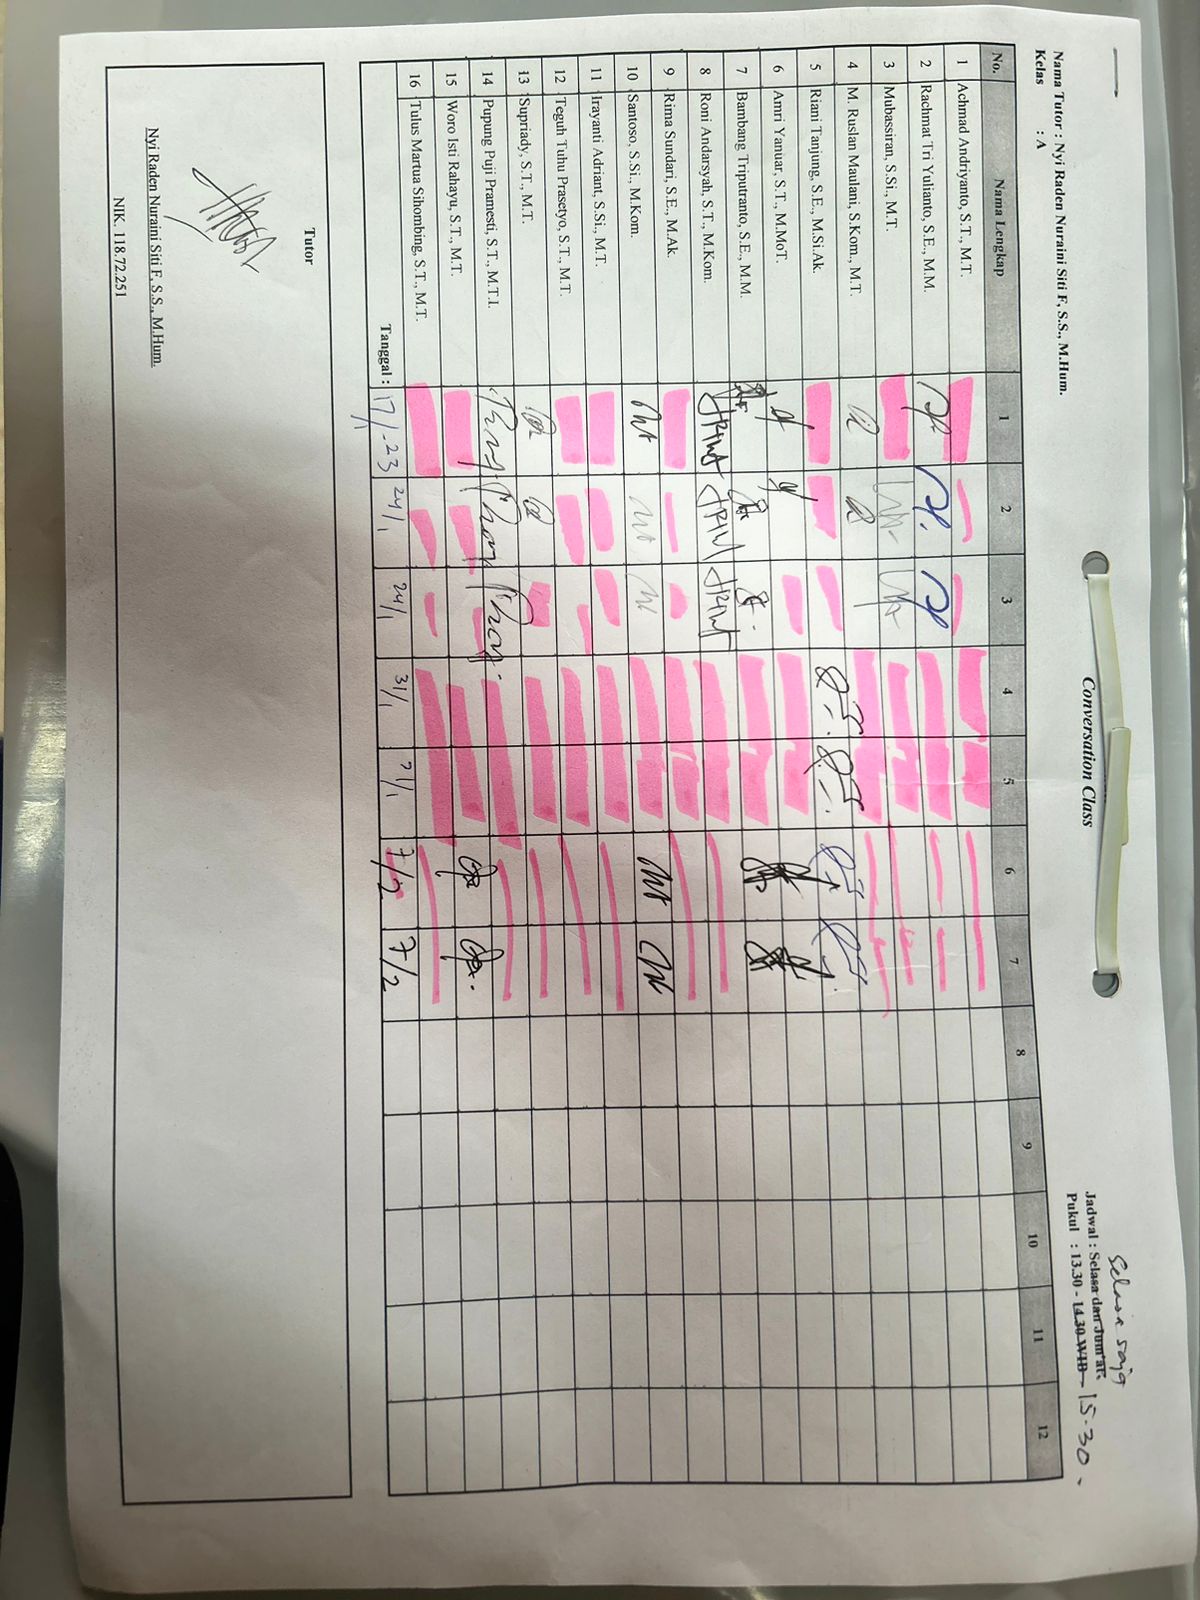 Conversation Class
Nama Tutor : Nyi Raden Nuraini Siti F, S.S., M.Hum.
Kelas : A
Selasa saja
Jadwal : Selasa dan Jum'at
Pukul : 13.30 - 14.30 WIB 15.30.
No. Nama Lengkap 1 2 3 4 5 6 7 8 9 10 11 12
1 Achmad Andriyanto, S.T., M.T.
2 Rachmat Tri Yulianto, S.E., M.M.
3 Mubassiran, S.Si., M.T.
4 M. Ruslan Maulani, S.Kom., M.T.
5 Riani Tanjung, S.E., M.Si.Ak.
6 Amri Yanuar, S.T., M.MoT.
7 Bambang Triputranto, S.E., M.M.
8 Roni Andarsyah, S.T., M.Kom.
9 Rima Sundari, S.E., M.Ak.
10 Santoso, S.Si., M.Kom.
11 Irayanti Adriant, S.Si., M.T.
12 Teguh Tuhu Prasetyo, S.T., M.T.
13 Supriady, S.T., M.T.
14 Pupung Puji Pramesti, S.T., M.T.I.
15 Woro Isti Rahayu, S.T., M.T.
16 Tulus Martua Sihombing, S.T., M.T.
Tanggal : 17/1.23 24/1 24/1 31/1 31/1 7/2 7/2
Tutor
Nyi Raden Nuraini Siti F. S.S., M.Hum.
NIK. 118.72.251